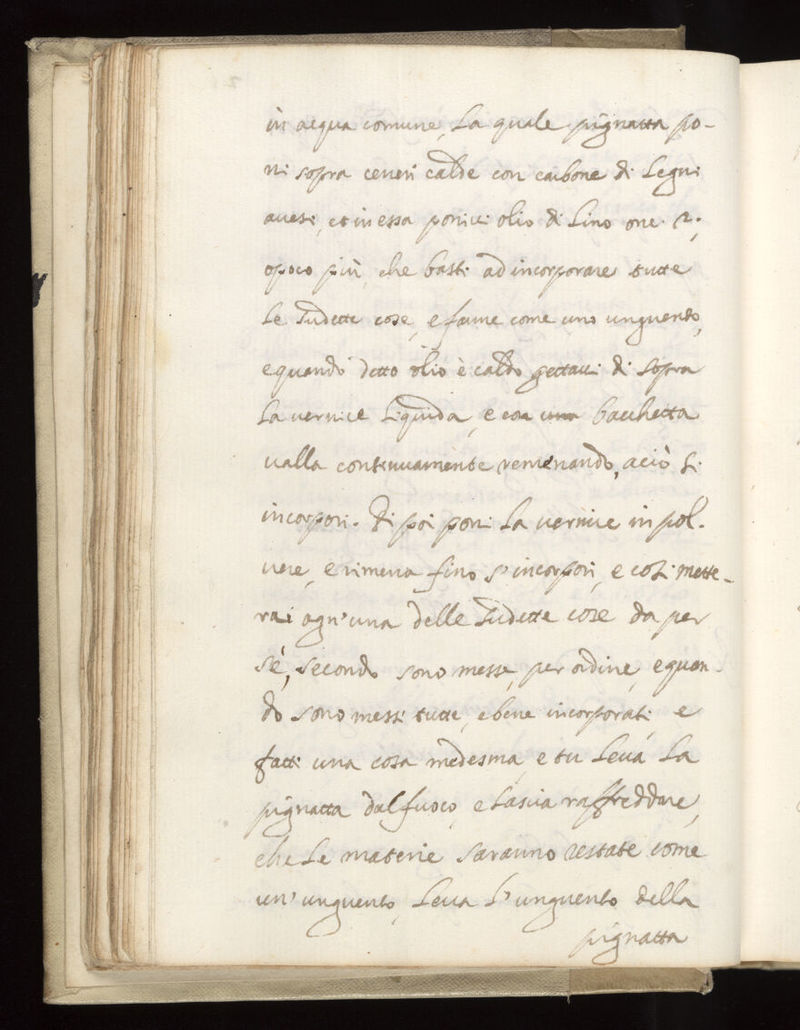 in acqua comune, La quale pignatta po-
ni sopra ceneri calde con carbone di Legni
avesi, et in essa ponivi olio di Lino one. 2.,
opoco più, che basti ad incorporare tutte
Le sudette cose, e farne come uno unguento,
e quando detto olio è caldo gettavi di sopra
La vernice Liquida, e con una bacchetta
valla continuamente remenando, aciò si
incorpori. di poi poni La vernice in pol-
vere, e rimena fino s'incorpori, e così mette-
rai ogn'una delle sudette cose da per
sé, secondo sono messe, per ordine, e quan-
do sono messi tutte, e bene incorporati e
fatti una cosa medesma, e tu Leva La
pignatta dal fuoco, e Lascia raffreddare,
che Le materie saranno restate come
un'unguento, Leva L'unguento della
pignatta